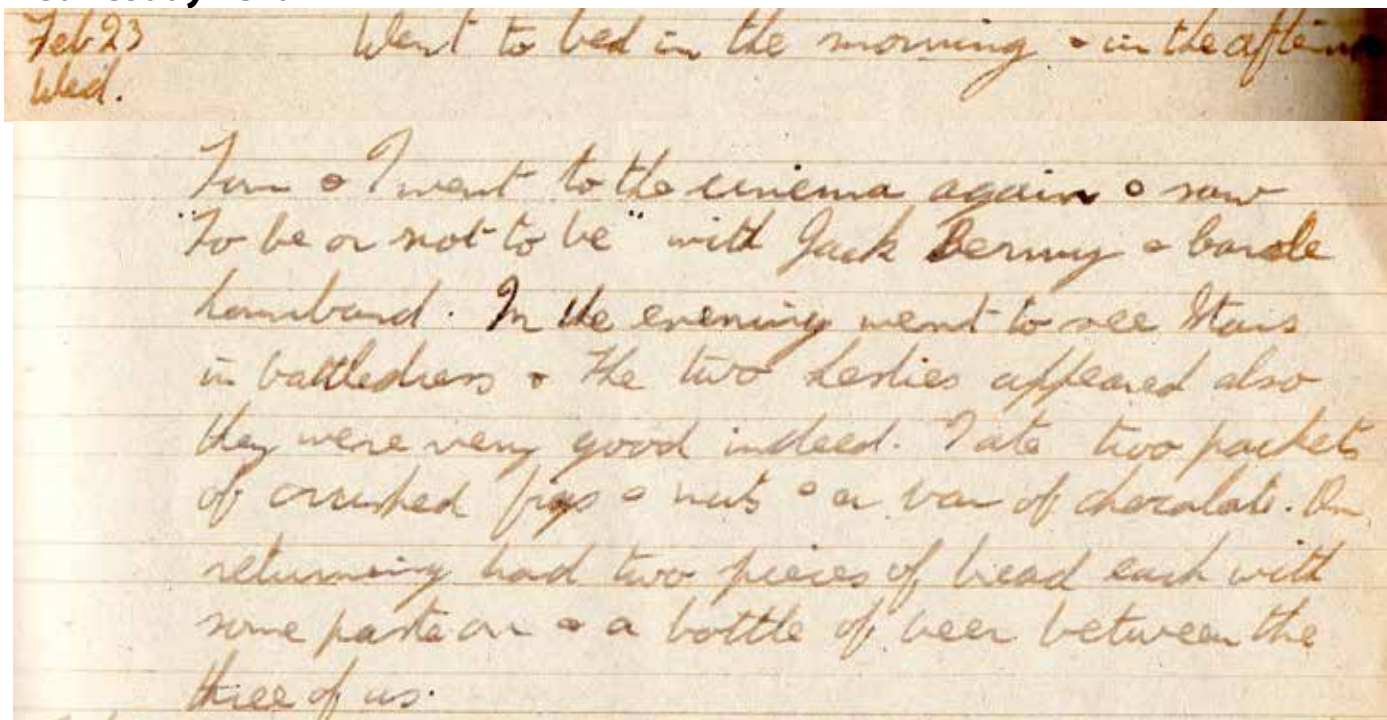 Feb 23 Went to bed in the morning & in the afterno
Wed.
& I went to the cinema again & saw
"To be or not to be" with Jack Benny & Carole
Lombard. In the evening went to see Stars
in battledress & the two Leslies appeared also
they were very good indeed. I ate two packets
of crushed figs & nuts & a bar of chocolate. On
returning had two pieces of bread each with
some paste on & a bottle of beer between the
three of us.